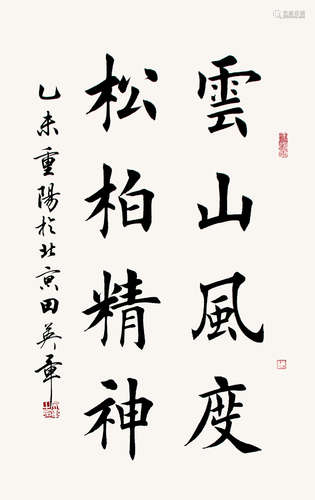 雲山風度
松柏精神
乙未重陽於北京田英章